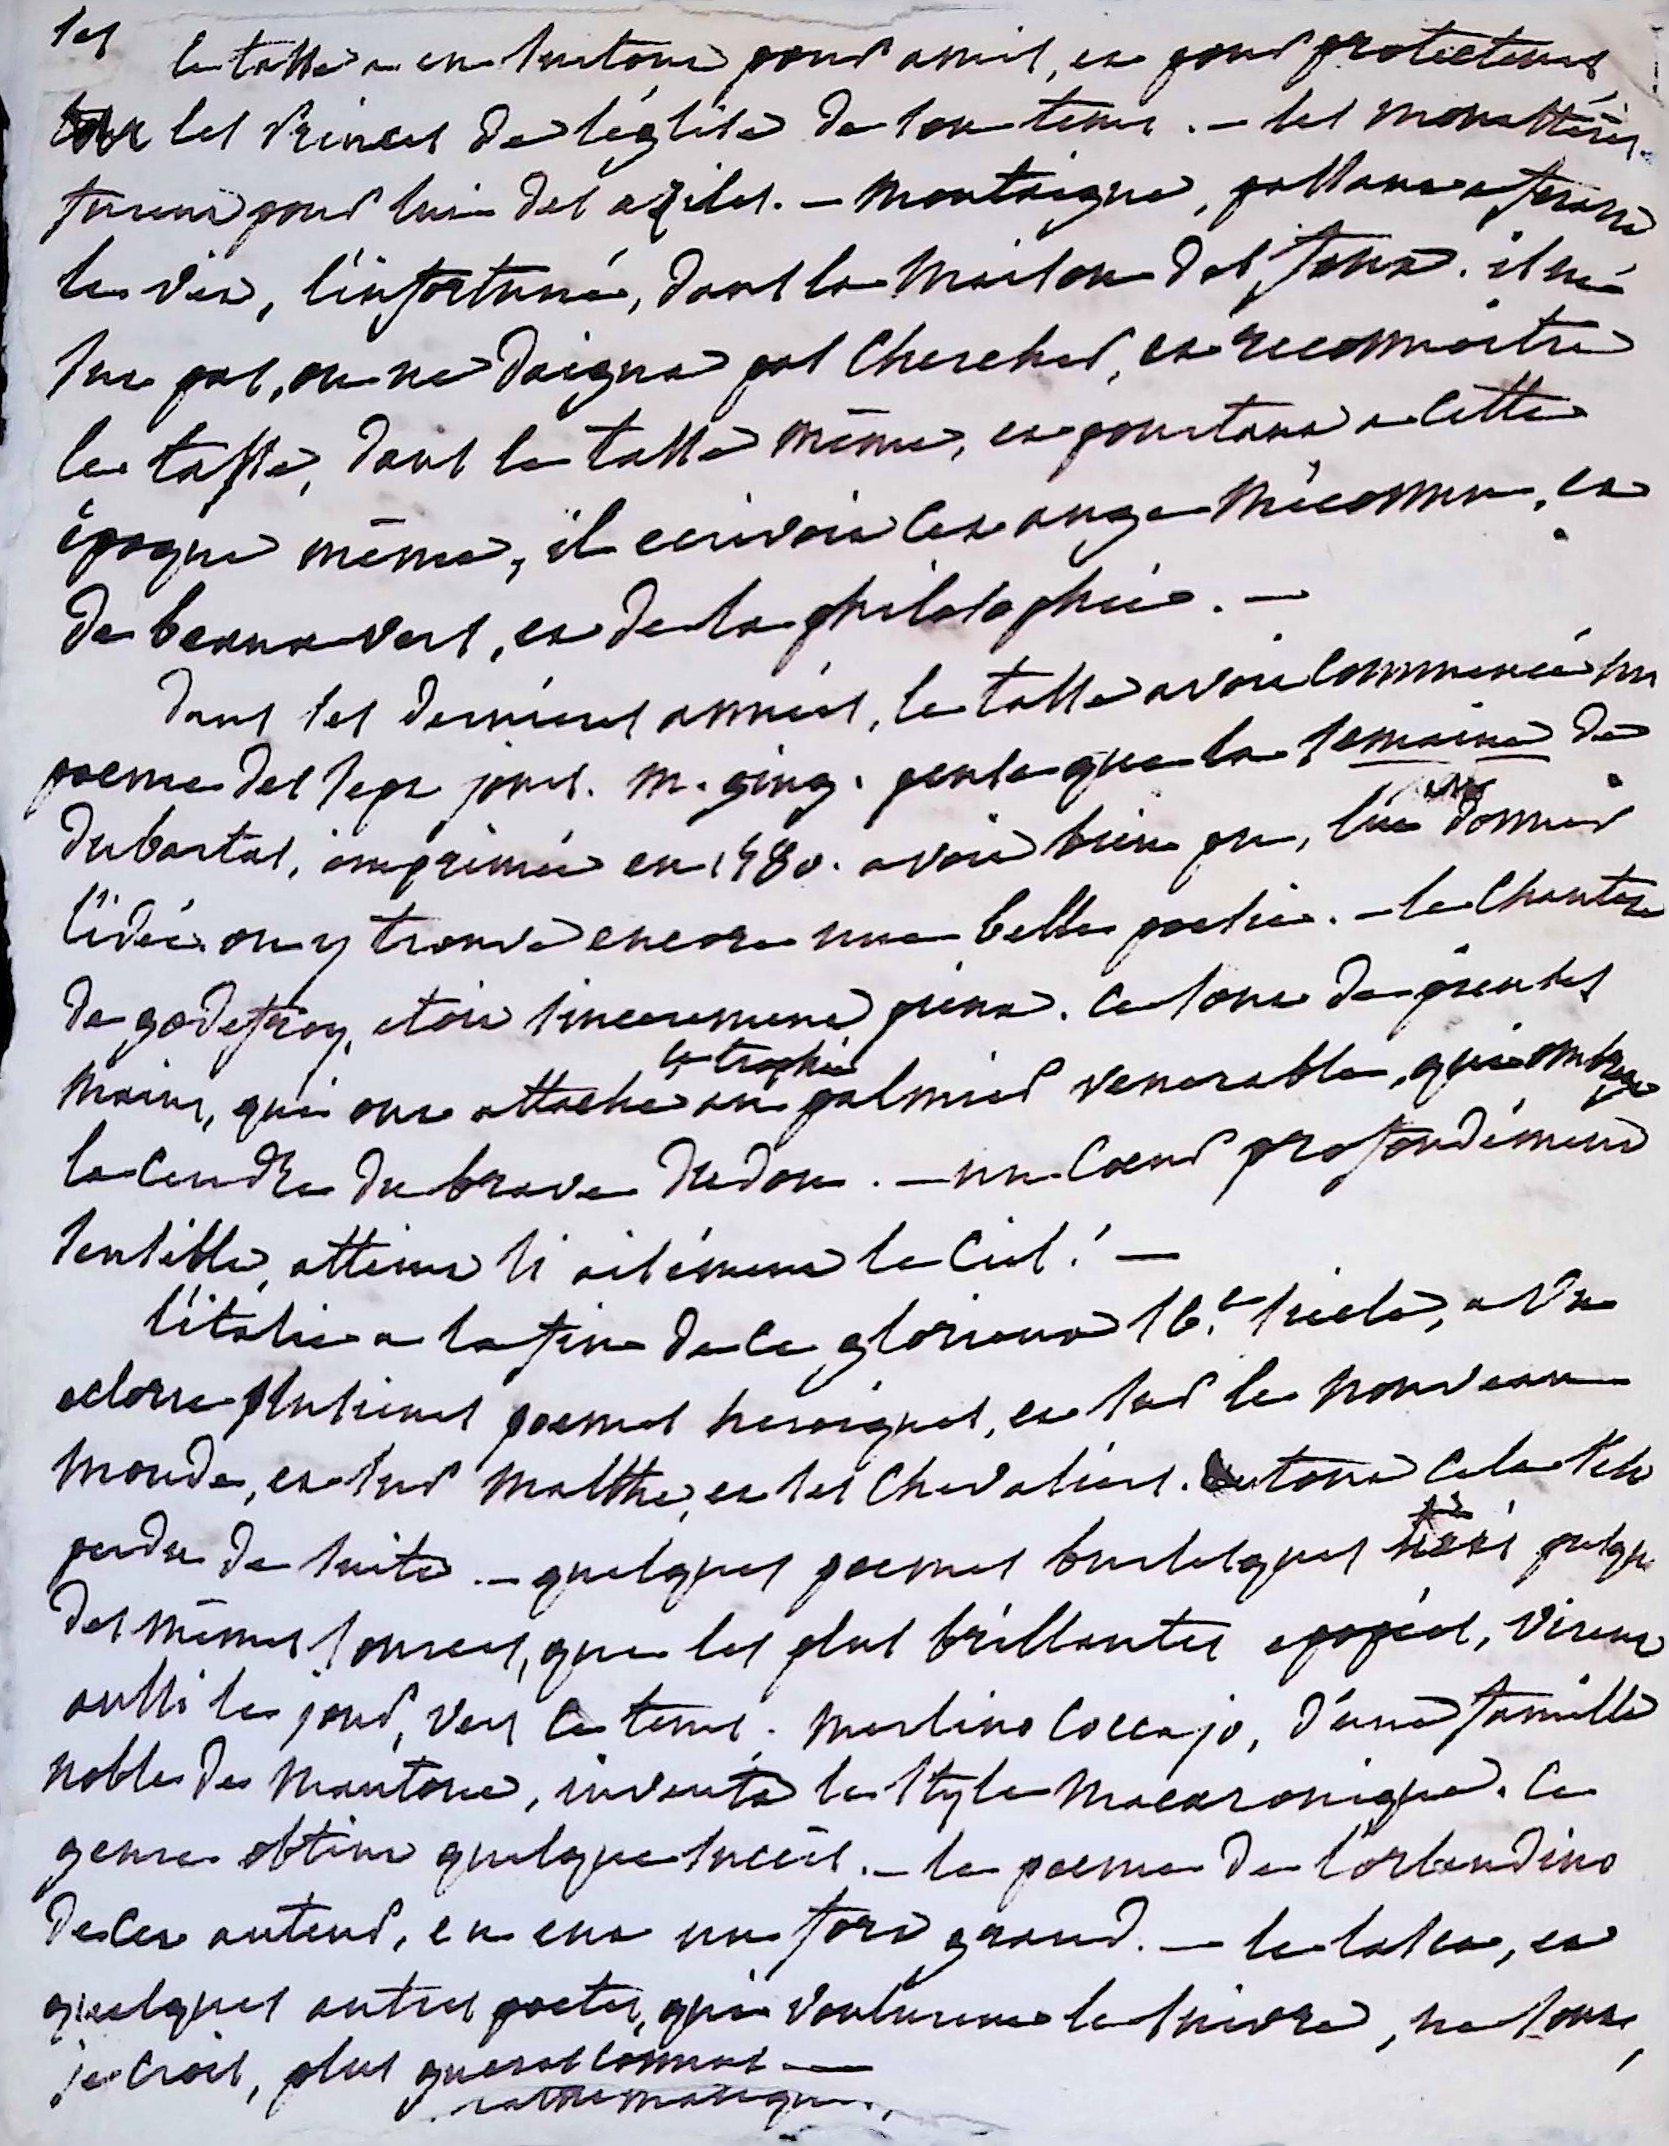 les
le tasse a eu surtout pour amis, et pour protecteurs
tous les Princes de l'église de son tems. - les monastères
furent pour lui des aziles. - montaigne, passant a ferare
le vit, l'infortuné, dans la maison des foux. il ne
sut pas, ou ne daigna pas chercher, et reconnoitre
le tasse, dans le tasse même, et pourtant a cette
époque même, il ecrivoit cet ange méconnu, et
de beaux vers, et de la philosophie. -
dans ses dernieres années, le tasse avoit commencé un
poeme des sept jours. m. ging. pense que la semaine de
dubartas, imprimée en 1580. avoit bien pu, lui en donner
l'idée. on y trouve encore une belle poesie. - le chantre
de godefroy, etoit sincerement pieux. ce sont de pieuses
mains, qui ont attaché le trophée au palmier venerable, qui ombrage
la cendre du brave dudon. - un coeur profondément
sensible, atteint si aisément le ciel! -
l'italie a la fin de ce glorieux 16.e siecle, a vu
eclorre plusieurs poemes heroiques, et sur le nouveau
monde, et sur malthe, et ses chevaliers. surtout cela s'est
perdu de suite. - quelques poemes burlesques tirés presque
des mêmes sources, que les plus brillantes epopées, virent
aussi le jour, vers ce tems. merlino coccajo, d'une famille
noble de mantoue, inventa le style macaronique. ce
genre obtint quelque succès. - le poeme de l'orlandino
de cet auteur, en eut un fort grand. - le lasca, et
quelques autres poetes, qui voulurent le suivre, ne sont,
je crois, plus gueres connus -